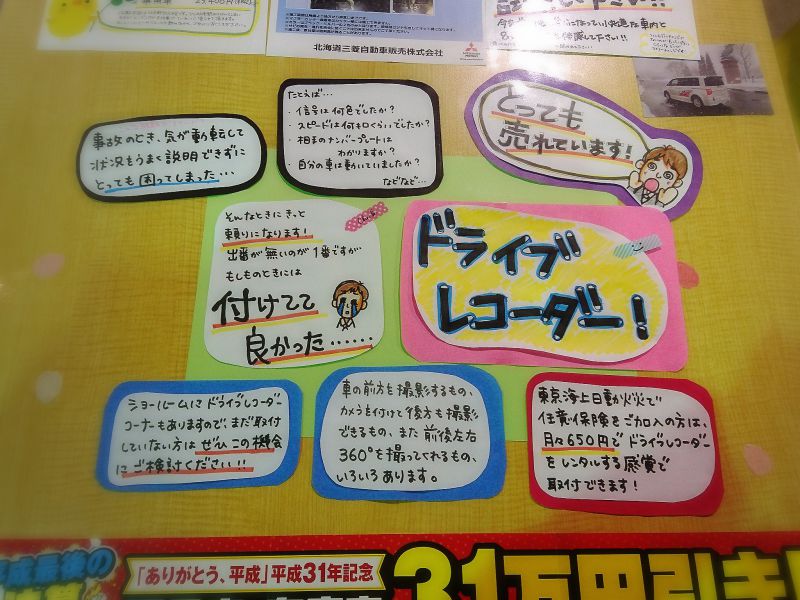 北海道三菱自動車販売株式会社
事故のとき、気が動転して
状況をうまく説明できずに
とっても困ってしまった…
たとえば…
・信号は何色でしたか？
・スピードは何キロくらいでしたか？
・相手のナンバープレートは
わかりますか？
・自分の車は動いていましたか？
などなど…
とっても
売れています！
そんなときにきっと
頼りになります！
出番が無いのが1番ですが
もしものときには
付けてて
良かった……
ドライブ
レコーダー！
ショールームにドライブレコーダー
コーナーもありますので、まだ取付
していない方はぜひこの機会
にご検討ください！！
車の前方を撮影するもの、
カメラも付けて後方も撮影
できるもの、また前後左右
360°を撮ってくれるもの、
いろいろあります。
東京海上日動火災で
任意保険をご加入の方は、
月々650円でドライブレコーダー
をレンタルする感覚で
取付できます！
平成最後の
「ありがとう、平成」平成31年記念
3.1万円引き